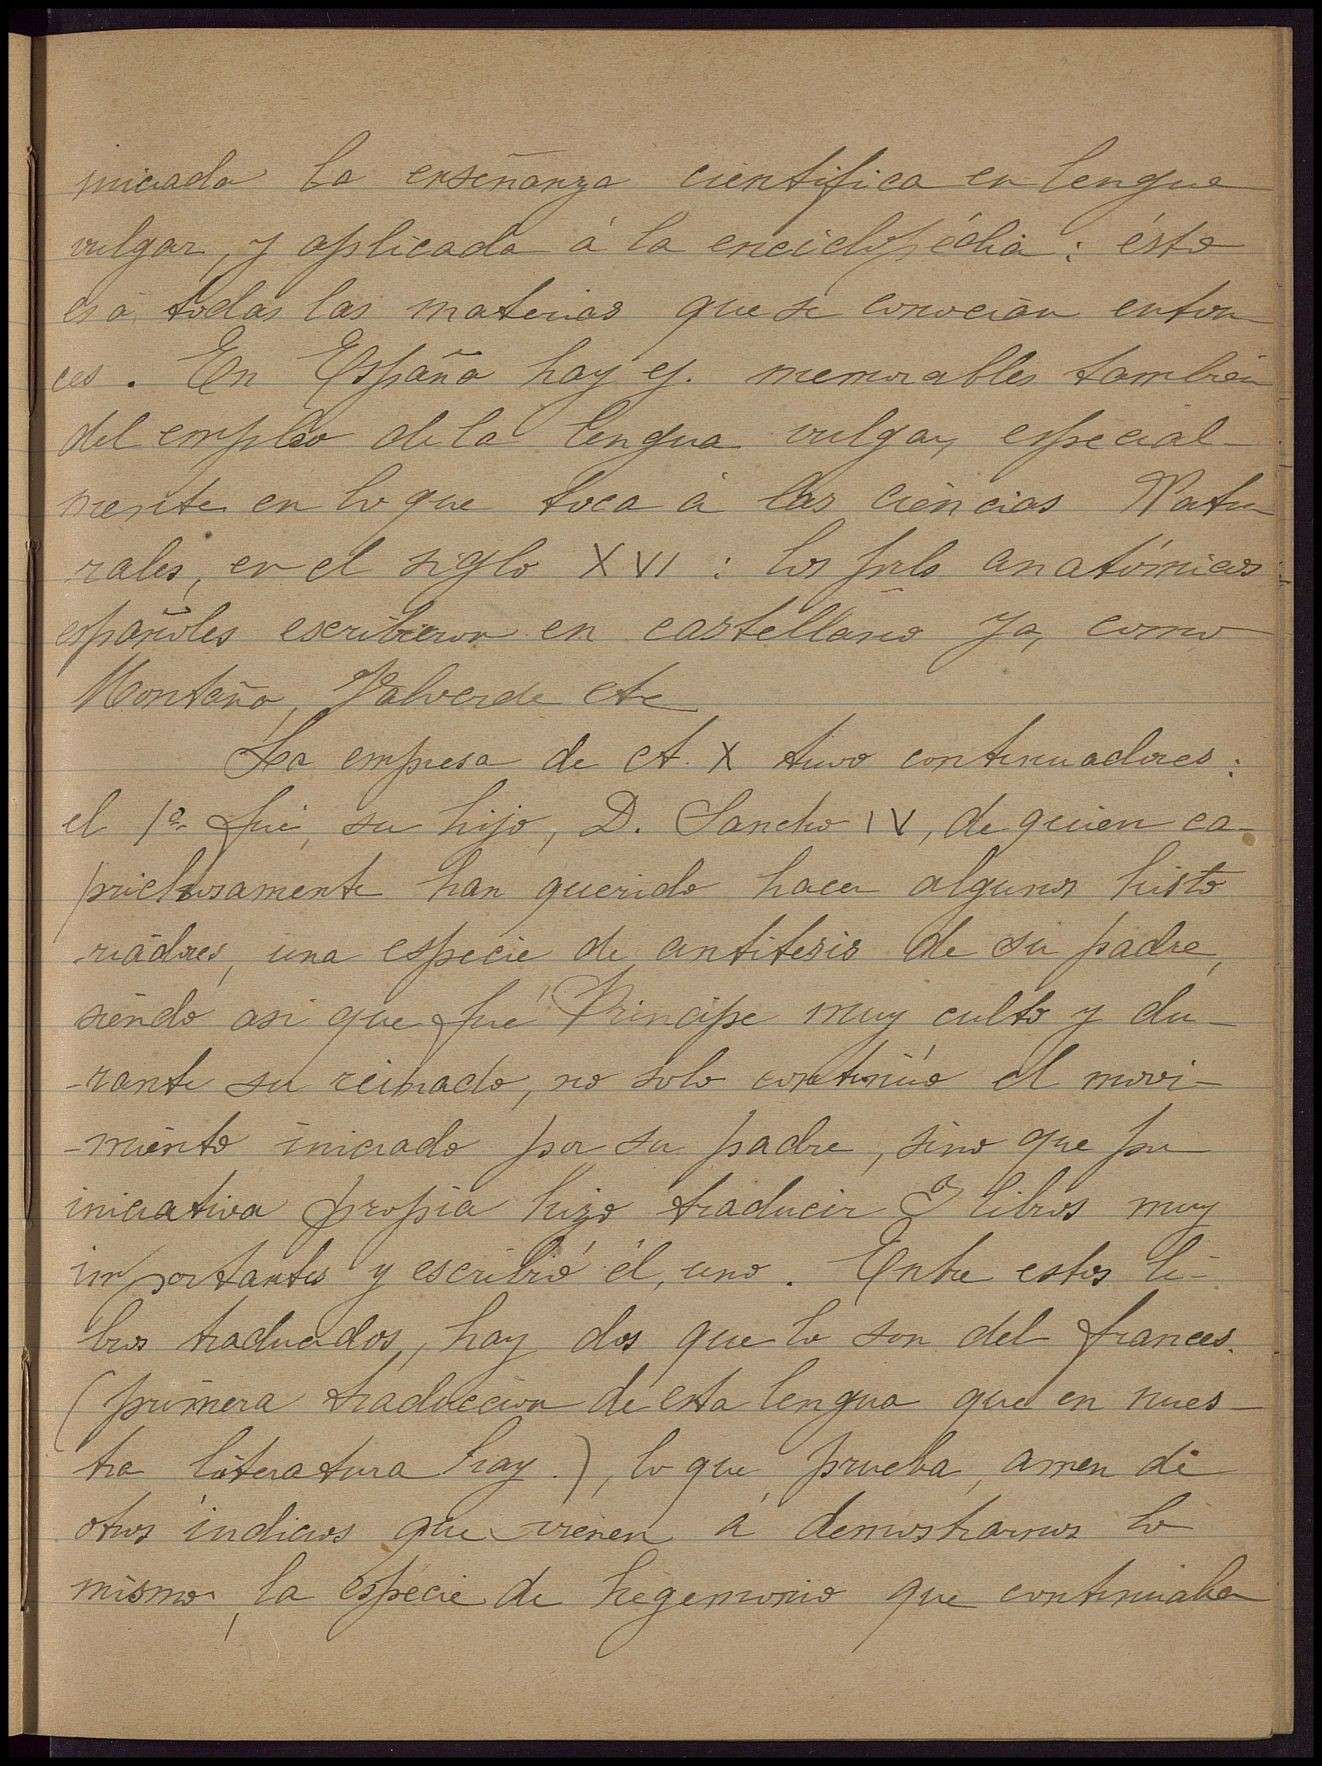 iniciada la enseñanza cientifica en lengua
vulgar, y aplicada á la enciclopédia: ésto
es á todas las materias que se conocian enton
ces. En España hay ej. memorables tambien
del empleo de la lengua vulgar, especial-
mente en lo que toca á las ciencias Natu
rales, en el siglo XVI: los anatómicos
españoles escribieron en castellano ya, como
Montaña, Valverde etc
La empresa de A. X tuvo continuadores:
el 1º fué, su hijo, D. Sancho IV, de quien ca-
prichosamente han querido hacer algunos histo
-riadores, una especie de antitesis de su padre,
siendo asi que fué Principe muy culto y du-
-rante su reinado, no solo continuó el movi-
-miento iniciado por su padre, sino que por
iniciativa propia hizo traducir libros muy
importantes y escribió él, uno. Entre estos li-
bros traducidos, hay dos que lo son del frances.
(primera traduccion de esta lengua que en nues-
tra literatura hay.), lo que prueba, amen de
otros indicios que vienen á demostrarnos lo
mismo, la especie de hegemonia que continuaba